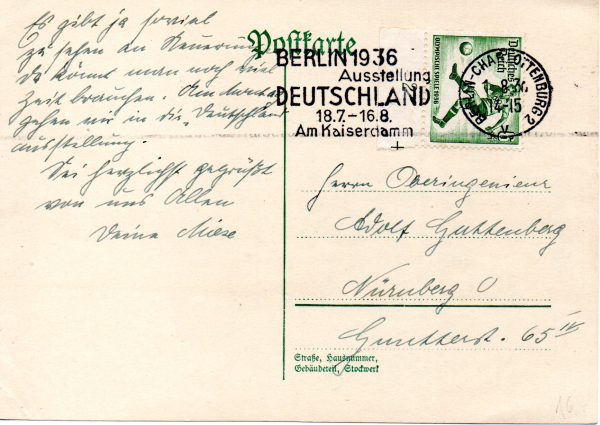 Es gibt ja soviel
zu sehen an Neuerung
da könnt man noch viel
Zeit brauchen. Am
gehen wir in die „Deutschland
ausstellung.
Sei herzlichst gegrüßt
von uns Allen
Deine Miese
Postkarte
BERLIN 1936
Ausstellung
DEUTSCHLAND
18.7.-16.8.
Am Kaiserdamm
OLYMPISCHE SPIELE 1936
Deutsches Reich
BERLIN-CHARLOTTENBURG 2
14-15
Herrn Oberingenieur
Adolf Guttenberg
Nürnberg O
Guntherst. 65 IV
Straße, Hausnummer,
Gebäudeteil, Stockwerk